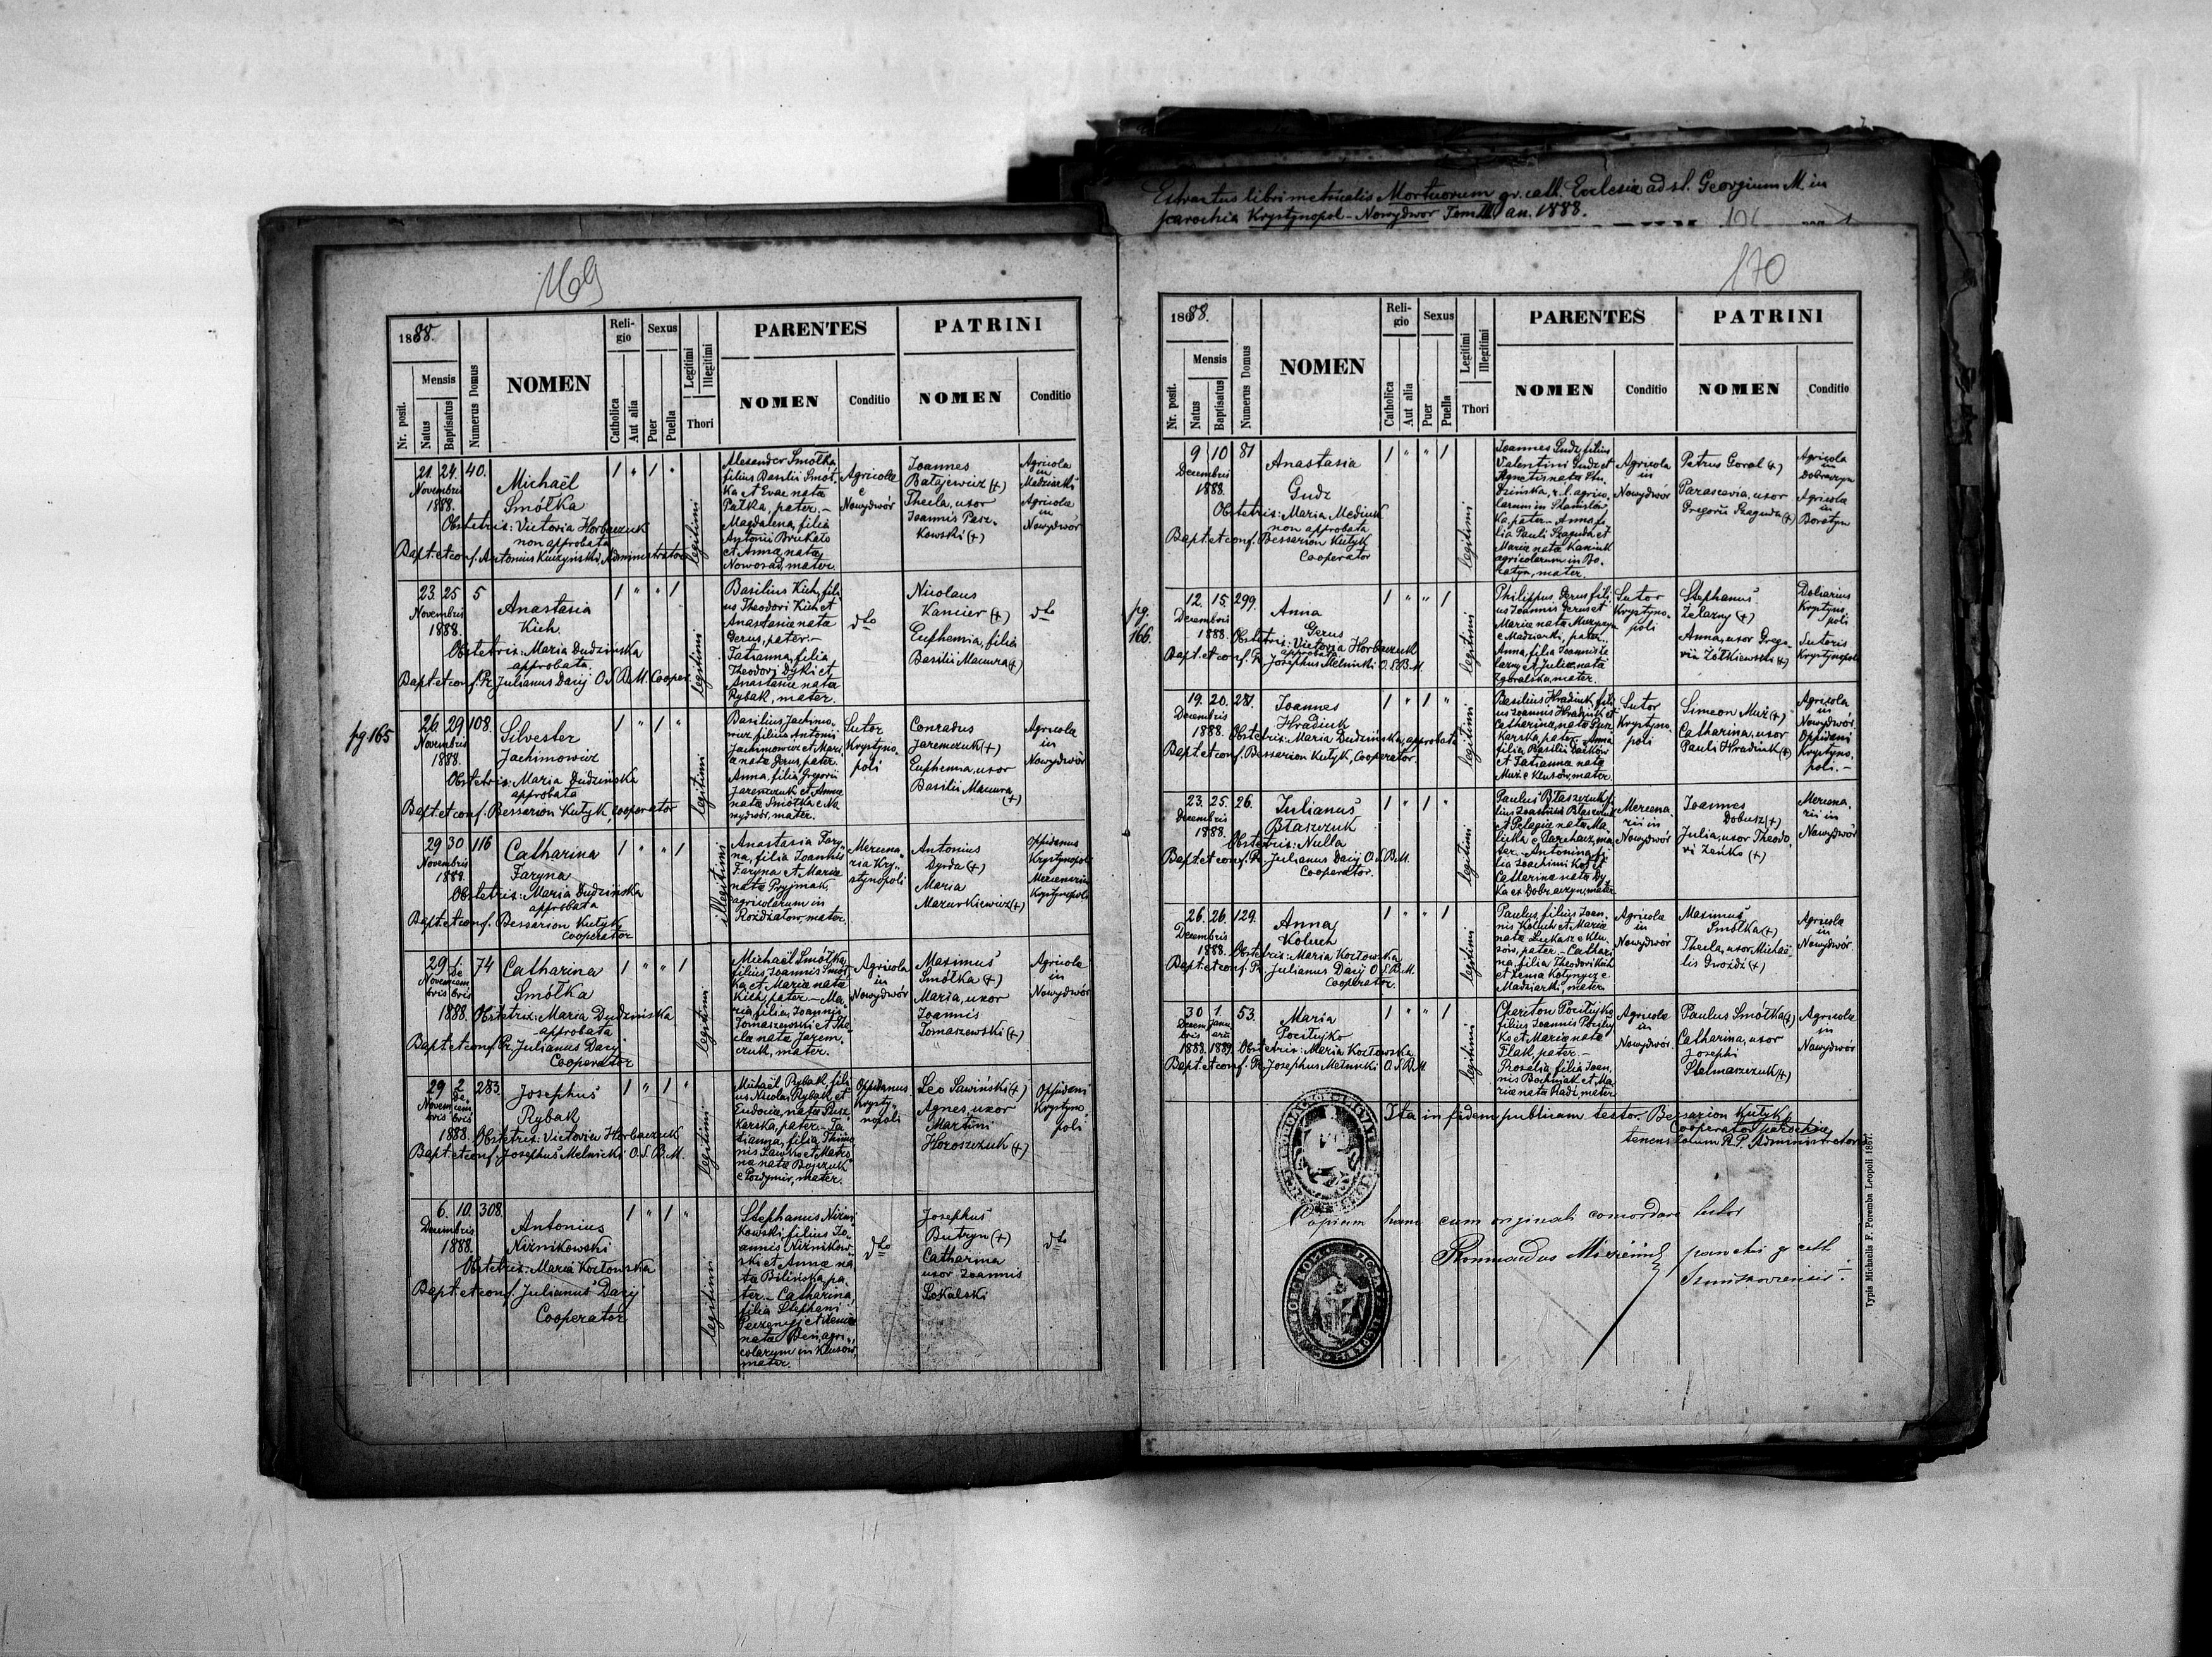 Extractus libri metricalis Mortuorum gr. cath. Ecclesia ad st. Georgium M. in
parochia Krystynopol - Nowydwor Tom III an. 1888.
169
1888.
Nr. posit.
Mensis
Natus
Baptisatus
Numerus Domus
NOMEN
Religio
Catholica
Aut alia
Sexus
Puer
Puella
Legitimi
Illegitimi
Thori
PARENTES
NOMEN
Conditio
PATRINI
NOMEN
Conditio
21. 24. 40.
Novembris
1888.
Michaël
Smółka
Obstetrix: Victoria Horbaczuk
non approbata
Bapt. et conf. Antonius Kuczyński, Administrator
1 " 1 "
legitimi
Alexander Smółka
filius Basilii Smół-
ka et Evae nata
Pałka, pater. -
Magdalena, filia
Antonii Brukało
et Anna nata
Nowosad, mater.
Agricola
e
Nowydwór
Joannes
Batajewicz (+)
Thecla, uxor
Joannis Pasz-
kowski (+)
Agricola
in
Madziarki
Agricola
in
Nowydwór
23. 25 5
Novembris
1888.
Anastasia
Kich
Obstetrix: Maria Dudzińska
approbata.
Bapt. et conf. Pr. Julianus Dacij O. S. B. M. Cooper.
1 " " 1
legitimi
Basilius Kich, fili-
us Theodori Kich et
Anastasia nata
Gerus, pater. -
Tatianna, filia
Theodori Dyki et
Anastasia nata
Rybak, mater.
dto
Nicolaus
Kancier (+)
Euphemia, filia
Basilii Macura (+)
dto
pg 165
26. 29. 108.
Novembris
1888.
Silvester
Jachimowicz
Obstetrix: Maria Dudzińska
approbata
Bapt. et conf. Bessarion Kutyk, cooperator
1 " 1 "
legitimi
Basilius Jachimo-
wicz filius Antonii
Jachimowicz et Mari-
a nata Gerus, pater.
Anna, filia Gregorii
Jaremczuk et Anna
nata Smółka e No-
wydwór, mater.
Sutor
Krystyno-
poli
Conradus
Jaremczuk (+)
Euphemia, uxor
Basilii Macura
(+)
Agricola
in
Nowydwór
29 30 116
Novembris
1888.
Catharina
Faryna
Obstetrix: Maria Dudzińska
approbata
Bapt. et conf. Bessarion Kutyk
Cooperator
1 " " 1
illegitimi
Anastasia Fary-
na, filia Joannis
Faryna et Maria
nata Pryjmak,
agricolarum in
Rożdżałow, mater.
Mercena-
ria Kry-
stynopoli
Antonius
Dyrda (+)
Maria
Mazurkiewicz (+)
Oppidanus
Krystynopoli
Mercenaria
Krystynopoli
29 1.
Novem- Decem-
bris bris
1888.
74
Catharina
Smółka
Obstetrix: Maria Dudzinska
approbata
Bapt. et conf. Pr. Julianus Dacij
Cooperator
1 " " 1
legitimi
Michaël Smółka,
filius Joannis Smół-
ka et Maria nata
Kich, pater. - Ma-
ria, filia Joannis
Tomaszewski et The-
cla nata Jarem-
czuk, mater.
Agricola
in
Nowydwór
Maximus
Smółka (+)
Maria, uxor
Joannis
Tomaszewski (+)
Agricola
in
Nowydwór
29 2
Novem- Decem-
bris bris
1888.
283
Josephus
Rybak
Obstetrix: Victoria Horbaczuk
Bapt. et conf. Josephus Melnicki O. S. B. M.
1 " 1 "
legitimi
Michaël Rybak, fili-
us Nicolai Rybak et
Eudocia, nata Pusz-
karska, pater. - Ta-
tianna, filia
nata Bojczuk
mater.
Oppidanus
Krysty-
nopoli
Leo Sawiński (+)
Agnes uxor
Martini
Horoszczuk (+)
Oppidani
Krystyno-
poli
6. 10. 308.
Decembris
1888.
Antonius
Niżnikowski
Obstetrix: Maria Kozłowska
Bapt. et conf. Julianus Dacij
Cooperator
1 " 1 "
legitimi
Stephanus Niżni-
kowski filius Jo-
annis Niżnikow-
ski et Anna na-
ta Bilińska, pa-
ter. - Catharina,
filia Stephani
et Xenia
nata agri-
colarum in Klusów,
mater.
dto
Josephus
Butryn (+)
Catharina
uxor Joannis
Sokalski
dto
170
1888.
Nr. posit.
Mensis
Natus
Baptisatus
Numerus Domus
NOMEN
Religio
Catholica
Aut alia
Sexus
Puer
Puella
Legitimi
Illegitimi
Thori
PARENTES
NOMEN
Conditio
PATRINI
NOMEN
Conditio
9 10 81
Decembris
1888.
Anastasia
Gudz
Obstetrix: Maria Mediuk
non approbata
Bapt. et conf. Bessarion Kutyk
Cooperator
1 " " 1
legitimi
Joannes Gudz, filius
Valentini Gudz et
Agnetis nata
agrico-
larum in
pater. - Anna fi-
lia Pauli Szaguda et
Maria nata
agricolarum in Bo-
ratyn, mater.
Agricola
in
Nowydwór
Petrus Goral (+)
Parascevia, uxor
Gregorii Szaguda (+)
Agricola
in
Dobraczyn
Agricola
in
Boratyn
pg.
166.
12. 15. 299.
Decembris
1888.
Anna
Gerus
Obstetrix: Victoria Horbaczuk
approbata
Bapt. et conf. Pr. Josephus Melnicki O. S. B. M.
1 " " 1
legitimi
Philippus Gerus fili-
us Joannis Gerus et
Maria nata
e Madziarki, pater. -
Anna, filia Joannis Że-
lazny et Julia nata
Zgoralska, mater.
Sutor
Krystyno-
poli
Stephanus
Żelazny (+)
Anna, uxor Grego-
rii Żółkiewski (+)
Doliarius
Krystyno-
poli
Sutoris
Krystynopoli
19. 20. 281.
Decembris
1888.
Joannes
Hradiuk
Obstetrix: Maria Dudzińska, approbata
Bapt. et conf. Bessarion Kutyk, Cooperator.
1 " 1 "
legitimi
Basilius Hradiuk, fili-
us Joannis Hradiuk et
Catharina, nata Pusz-
karska, pater. - Anna
filia Basilii
et Tatianna nata
Muż e Klusów, mater.
Sutor
Krystyno-
poli
Simeon Muż (+)
Catharina, uxor
Pauli Hradiuk (+)
Agricola
in
Nowydwór
Oppidani
Krystyno-
poli. -
23. 25. 26.
Decembris
1888.
Julianus
Błaszczuk
Obstetrix: Nulla
Bapt. et conf. Pr. Julianus Dacij O. S. B. M.
Cooperator.
1 " 1 "
legitimi
Paulus Błaszczuk fi-
lius Joannis Błaszczuk
et Pelagia nata Ma-
licka e Parchacz, pa-
ter. Antonina, fi-
lia Joachimi
Catharina nata Dy-
ka ex Dobraczyn, mater
Mercena-
rii in
Nowydwór
Joannes
Dobusz (+)
Julia, uxor Theodo-
ri Zańko (+)
Mercena-
rii in
Nowydwór
26. 26. 129.
Decembris
1888.
Anna
Koluch
Obstetrix: Maria Kozłowska
Bapt. et conf. Pr. Julianus Dacij O. S. B. M.
Cooperator.
1 " " 1
legitimi
Paulus, filius Joan-
nis Koluch et Maria
nata Lukasz e Klu-
sow, pater. - Cathari-
na, filia Theodori Kich
et Xenia Kotynycz e
Madziarki, mater.
Agricola
in
Nowydwór
Maximus
Smółka (+)
Thecla, uxor Michaë-
lis Gwoźdź (+)
Agricola
in
Nowydwór.
30 1.
Decem- Janu-
bris arii
1888. 1889.
53.
Maria
Pocituјko
Obstetrix: Maria Kozłowska
Bapt. et conf. Pr. Josephus Melnicki O. S. B. M.
1 " " 1
legitimi
Chariton
filius Joannis
et Maria nata
Flak, pater. -
Rosalia, filia Joan-
nis Bochniak et Ma-
ria nata Radz, mater
Agricola
in
Nowydwór.
Paulus Smółka (+)
Catharina, uxor
Josephi
Stelmaszczuk (+)
Agricola
in
Nowydwór
Ita in fidem publicam testor. Bessarion Kutyk
Cooperator parochiae
tenens locum R. P. Administratoris
Copiam hanc cum originali concordare testor
parochus gr. cath.
Typis Michaelis F. Poremba Leopoli 1867.